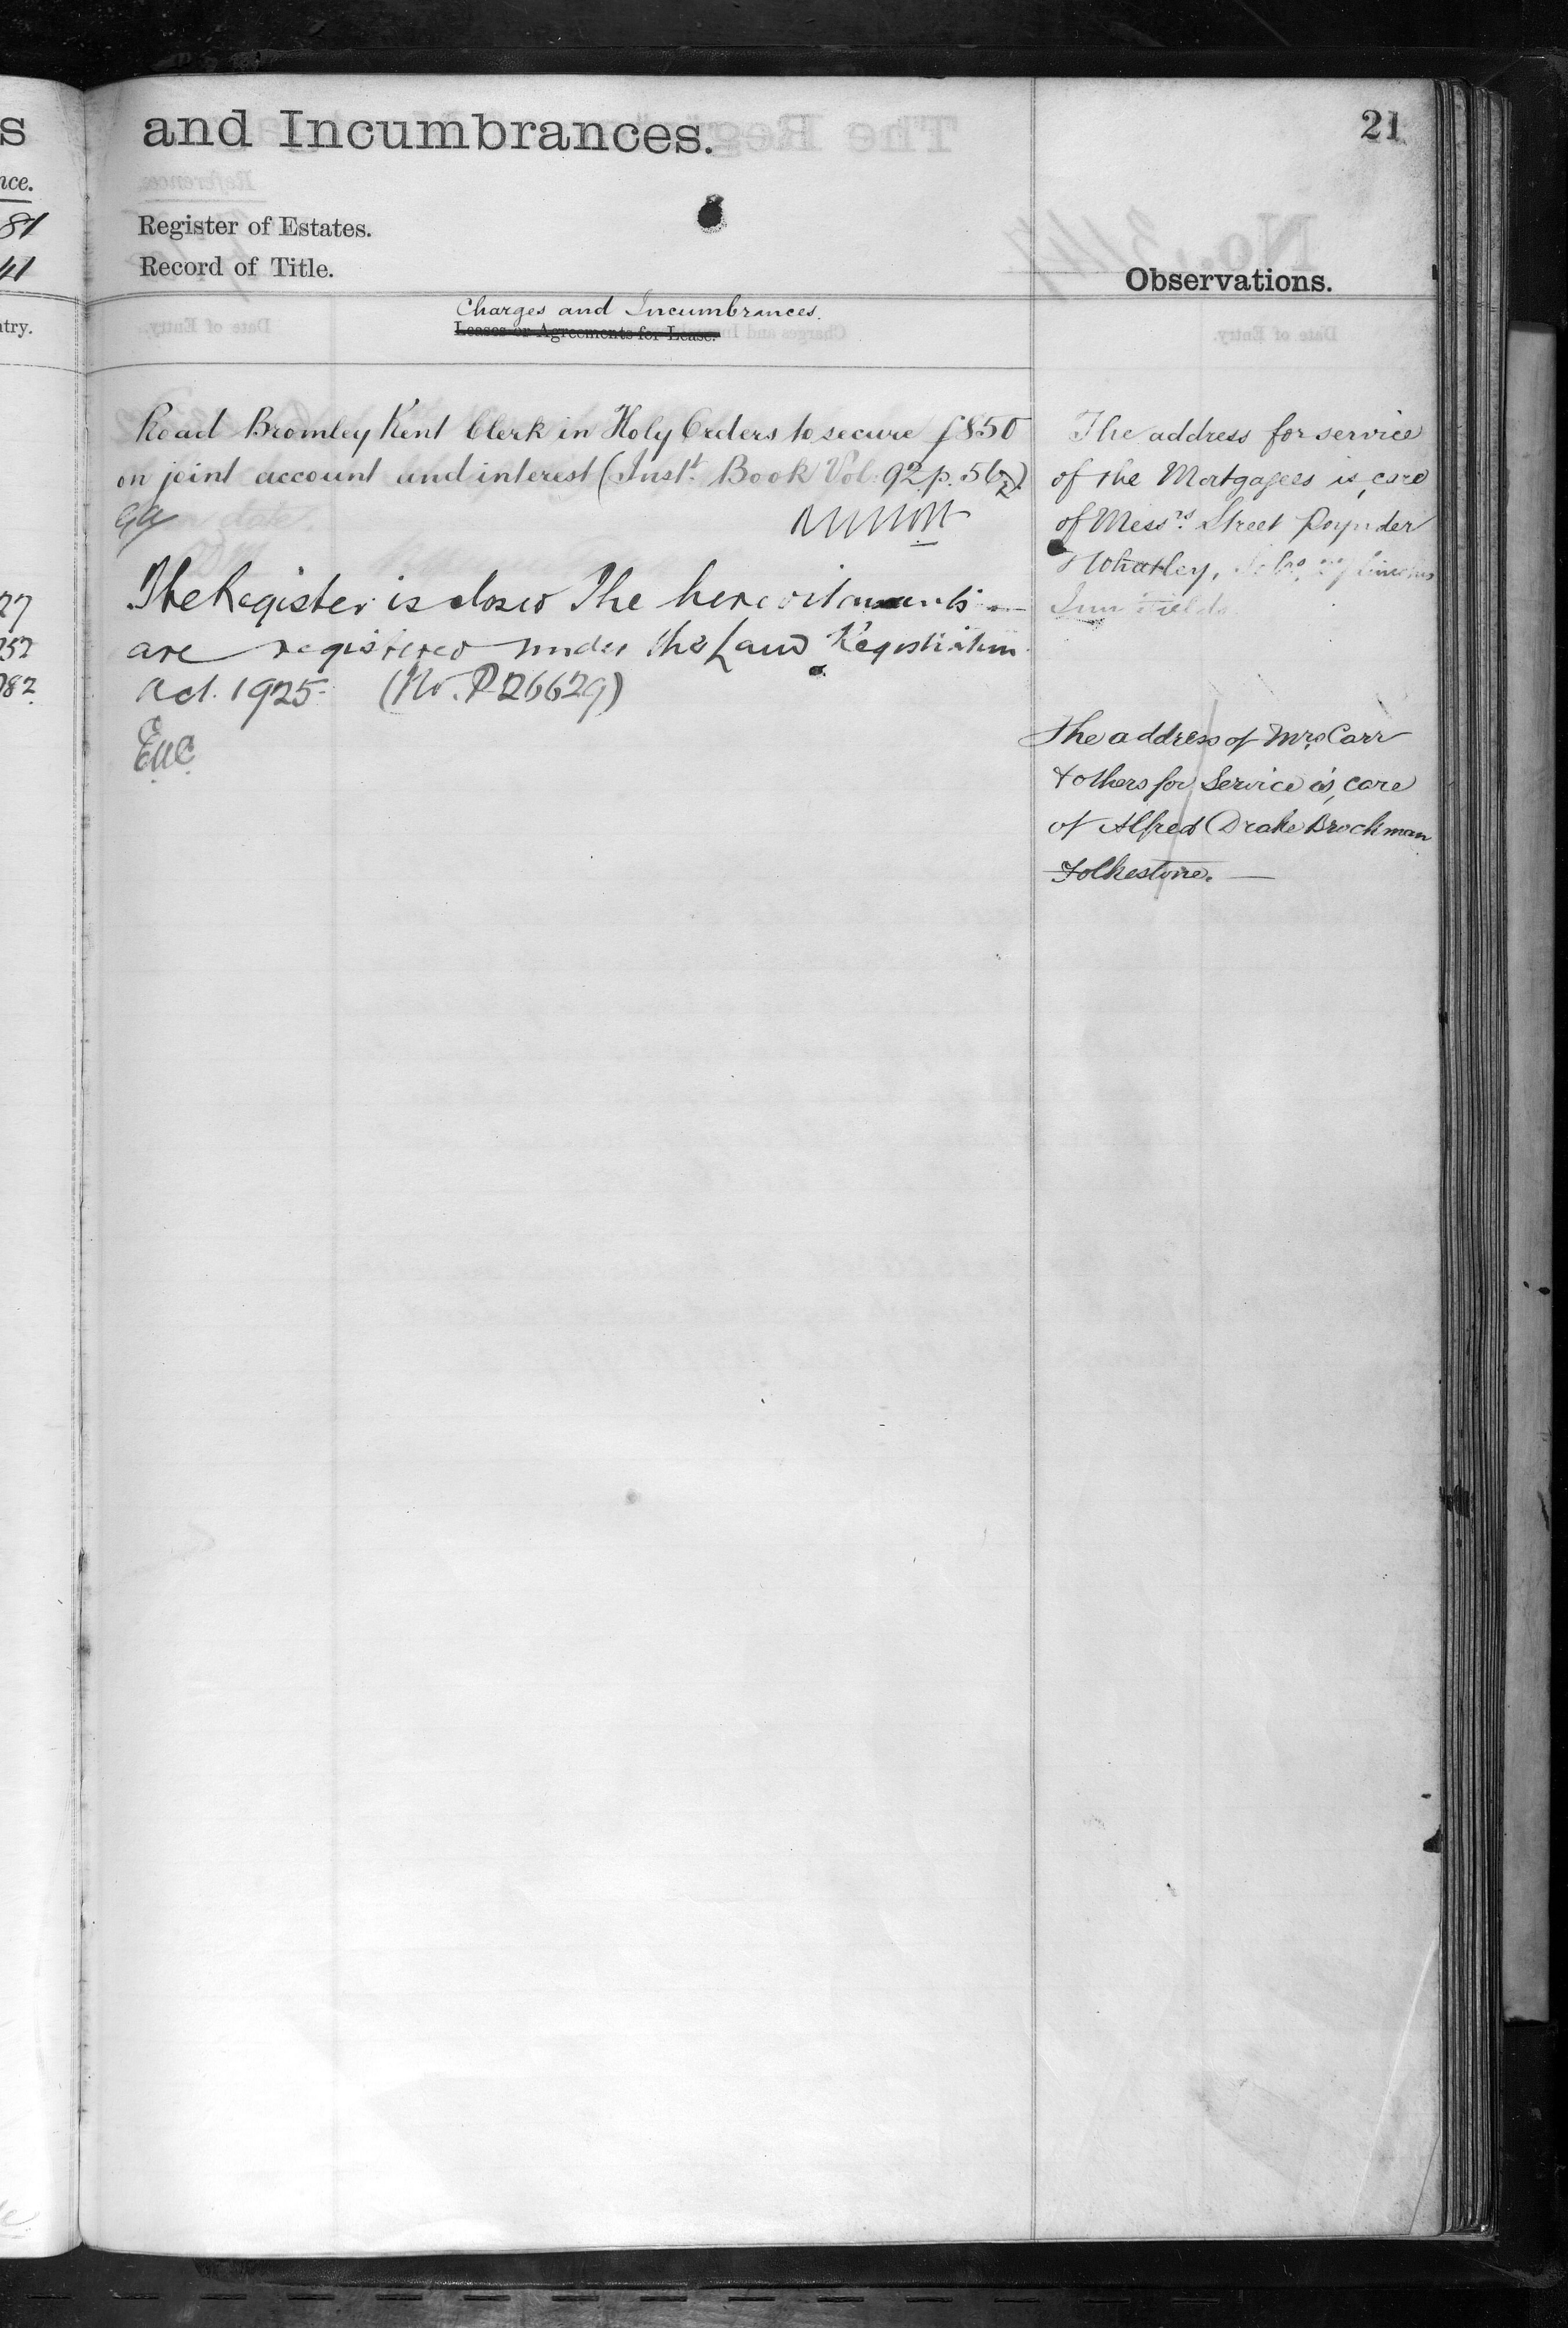 and Incumbrances.
21
Register of Estates.
Record of Title.
Observations.
Charges and Incumbrances.
Leases or Agreements for Lease.
Road Bromley Kent Clerk in Holy Orders to secure £850
on joint account and interest (Inst. Book Vol. 92 p. 562)
The Register is closed The hereditaments
are registered under the Land Registration
Act. 1925 (No. P26629)
The address for service
of the Mortgagees is, care
of Messrs. Street Poynder
& Whatley, Solrs of Lincolns
Inn Fields
The address of Mrs Carr
& others for Service is, care
of Alfred Drake Brockman
Folkestone.